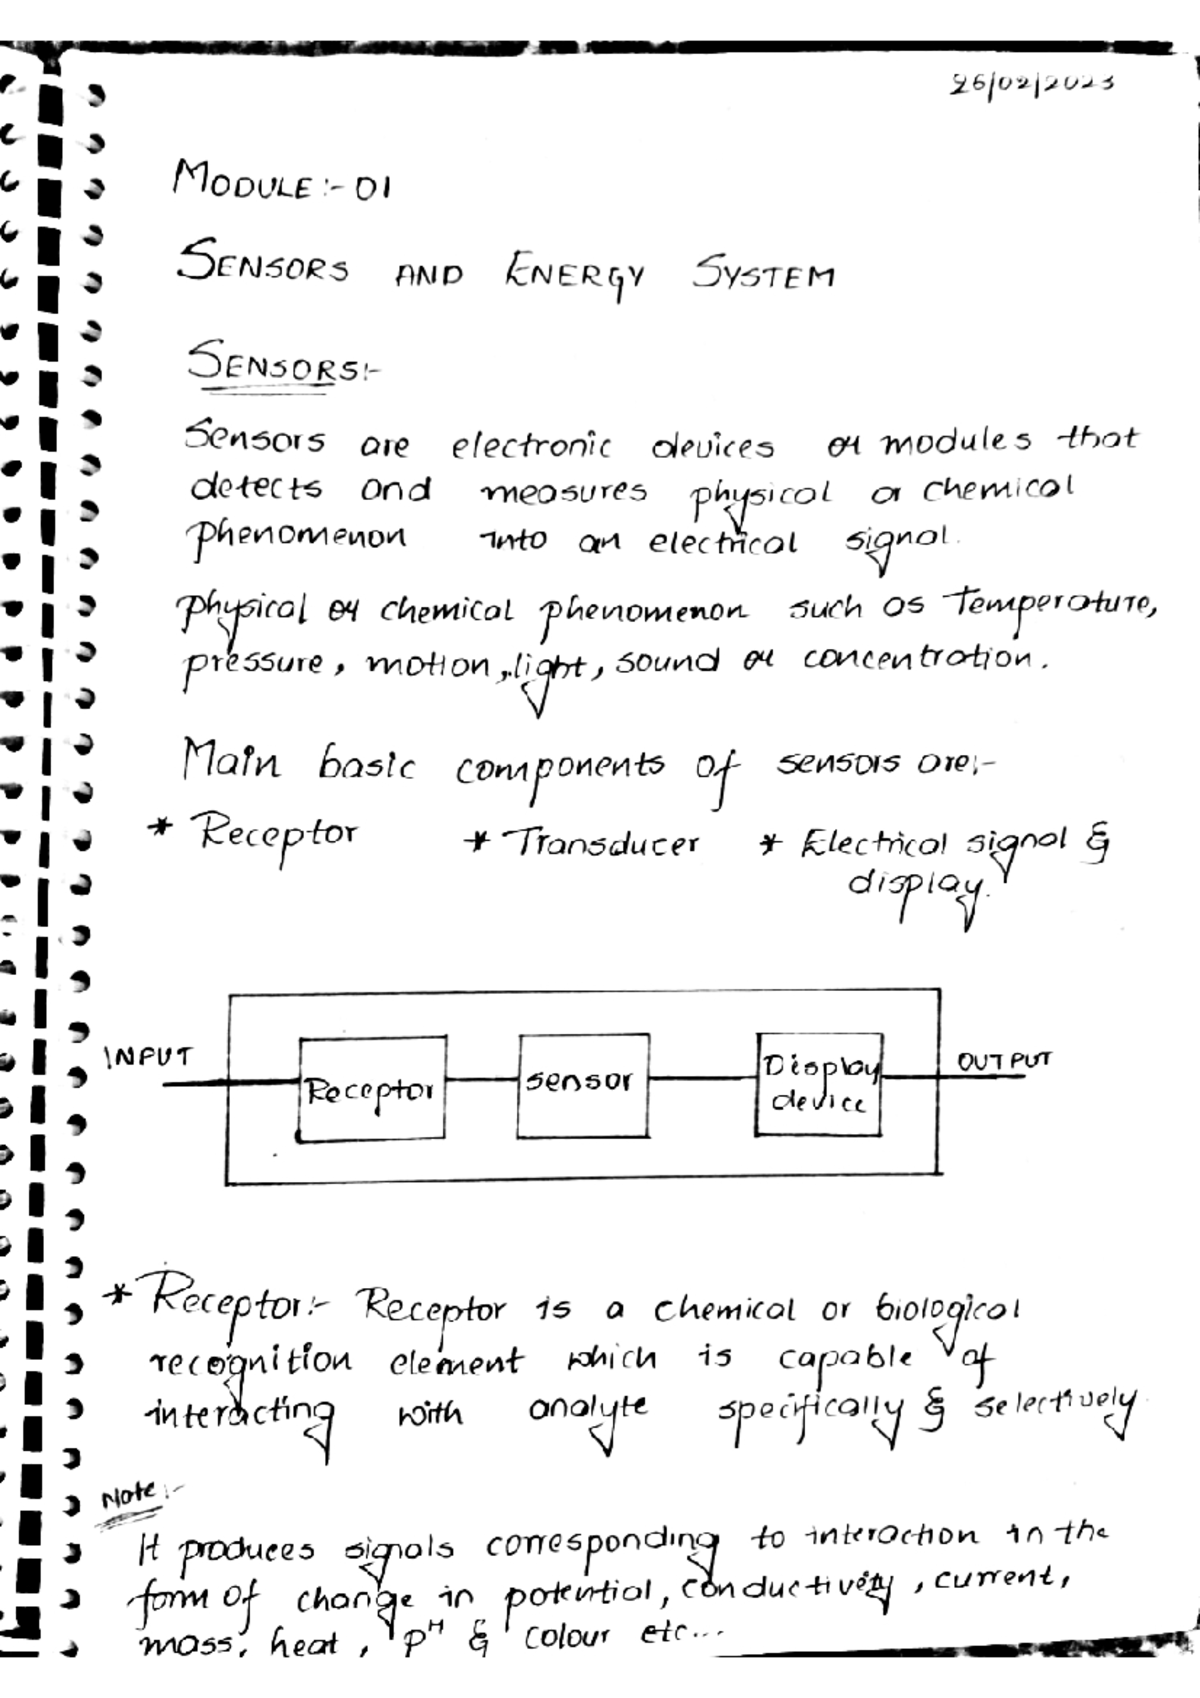 26/02/2023
MODULE:- 01
SENSORS AND ENERGY SYSTEM
SENSORS:-
Sensors are electronic devices or modules that
detects and measures physical or chemical
phenomenon into an electrical signal.
physical or chemical phenomenon such as Temperature,
pressure, motion, light, sound or concentration.
Main basic components of sensors are:-
* Receptor * Transducer * Electrical signal &
display.
INPUT Receptor sensor Display device OUTPUT
* Receptor:- Receptor is a chemical or biological
recognition element which is capable of
interacting with analyte specifically & selectively.
Note:-
It produces signals corresponding to interaction in the
form of change in potential, conductivity, current,
mass, heat, pH & colour etc...